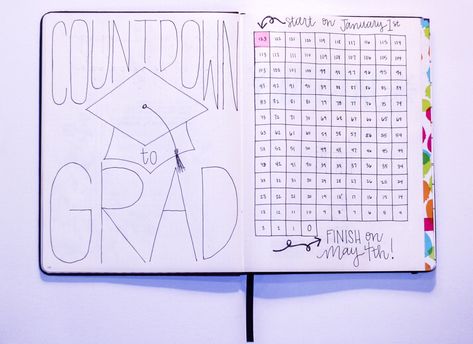 COUNTDOWN
to
GRAD
start on January 1st
123 122 121 120 119 118 117 116 115 114
113 112 111 110 109 108 107 106 105 104
103 102 101 100 99 98 97 96 95 94
93 92 91 90 89 88 87 86 85 84
83 82 81 80 79 78 77 76 75 74
73 72 71 70 69 68 67 66 65 64
63 62 61 60 59 58 57 56 55 54
53 52 51 50 49 48 47 46 45 44
43 42 41 40 39 38 37 36 35 34
33 32 31 30 29 28 27 26 25 24
23 22 21 20 19 18 17 16 15 14
13 12 11 10 9 8 7 6 5 4
3 2 1 0
FINISH on
May 4th!